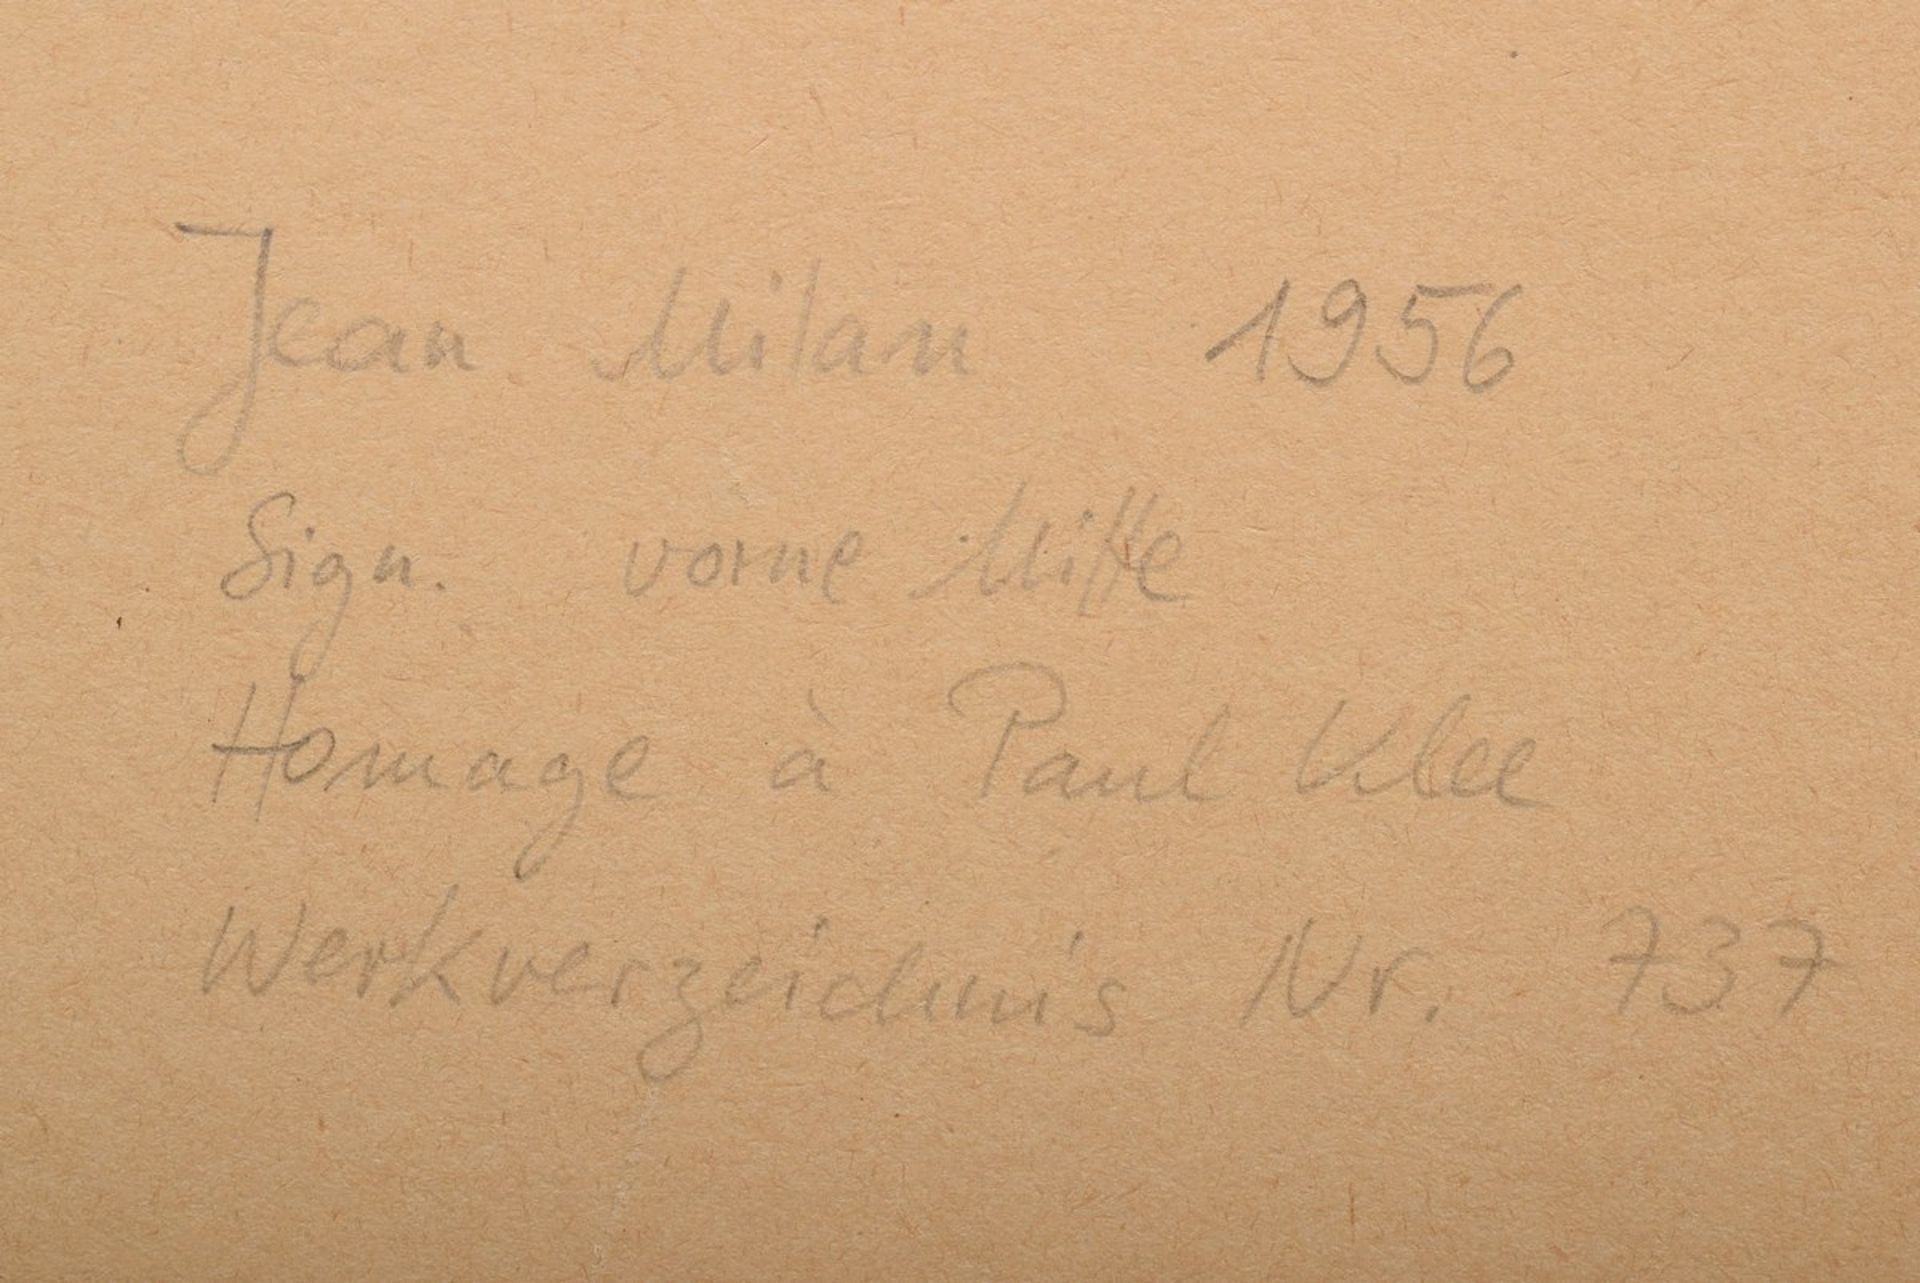 Jean Milan 1956
Sign. vorne Mitte
Homage à Paul Klee
Werkverzeichnis Nr. 737